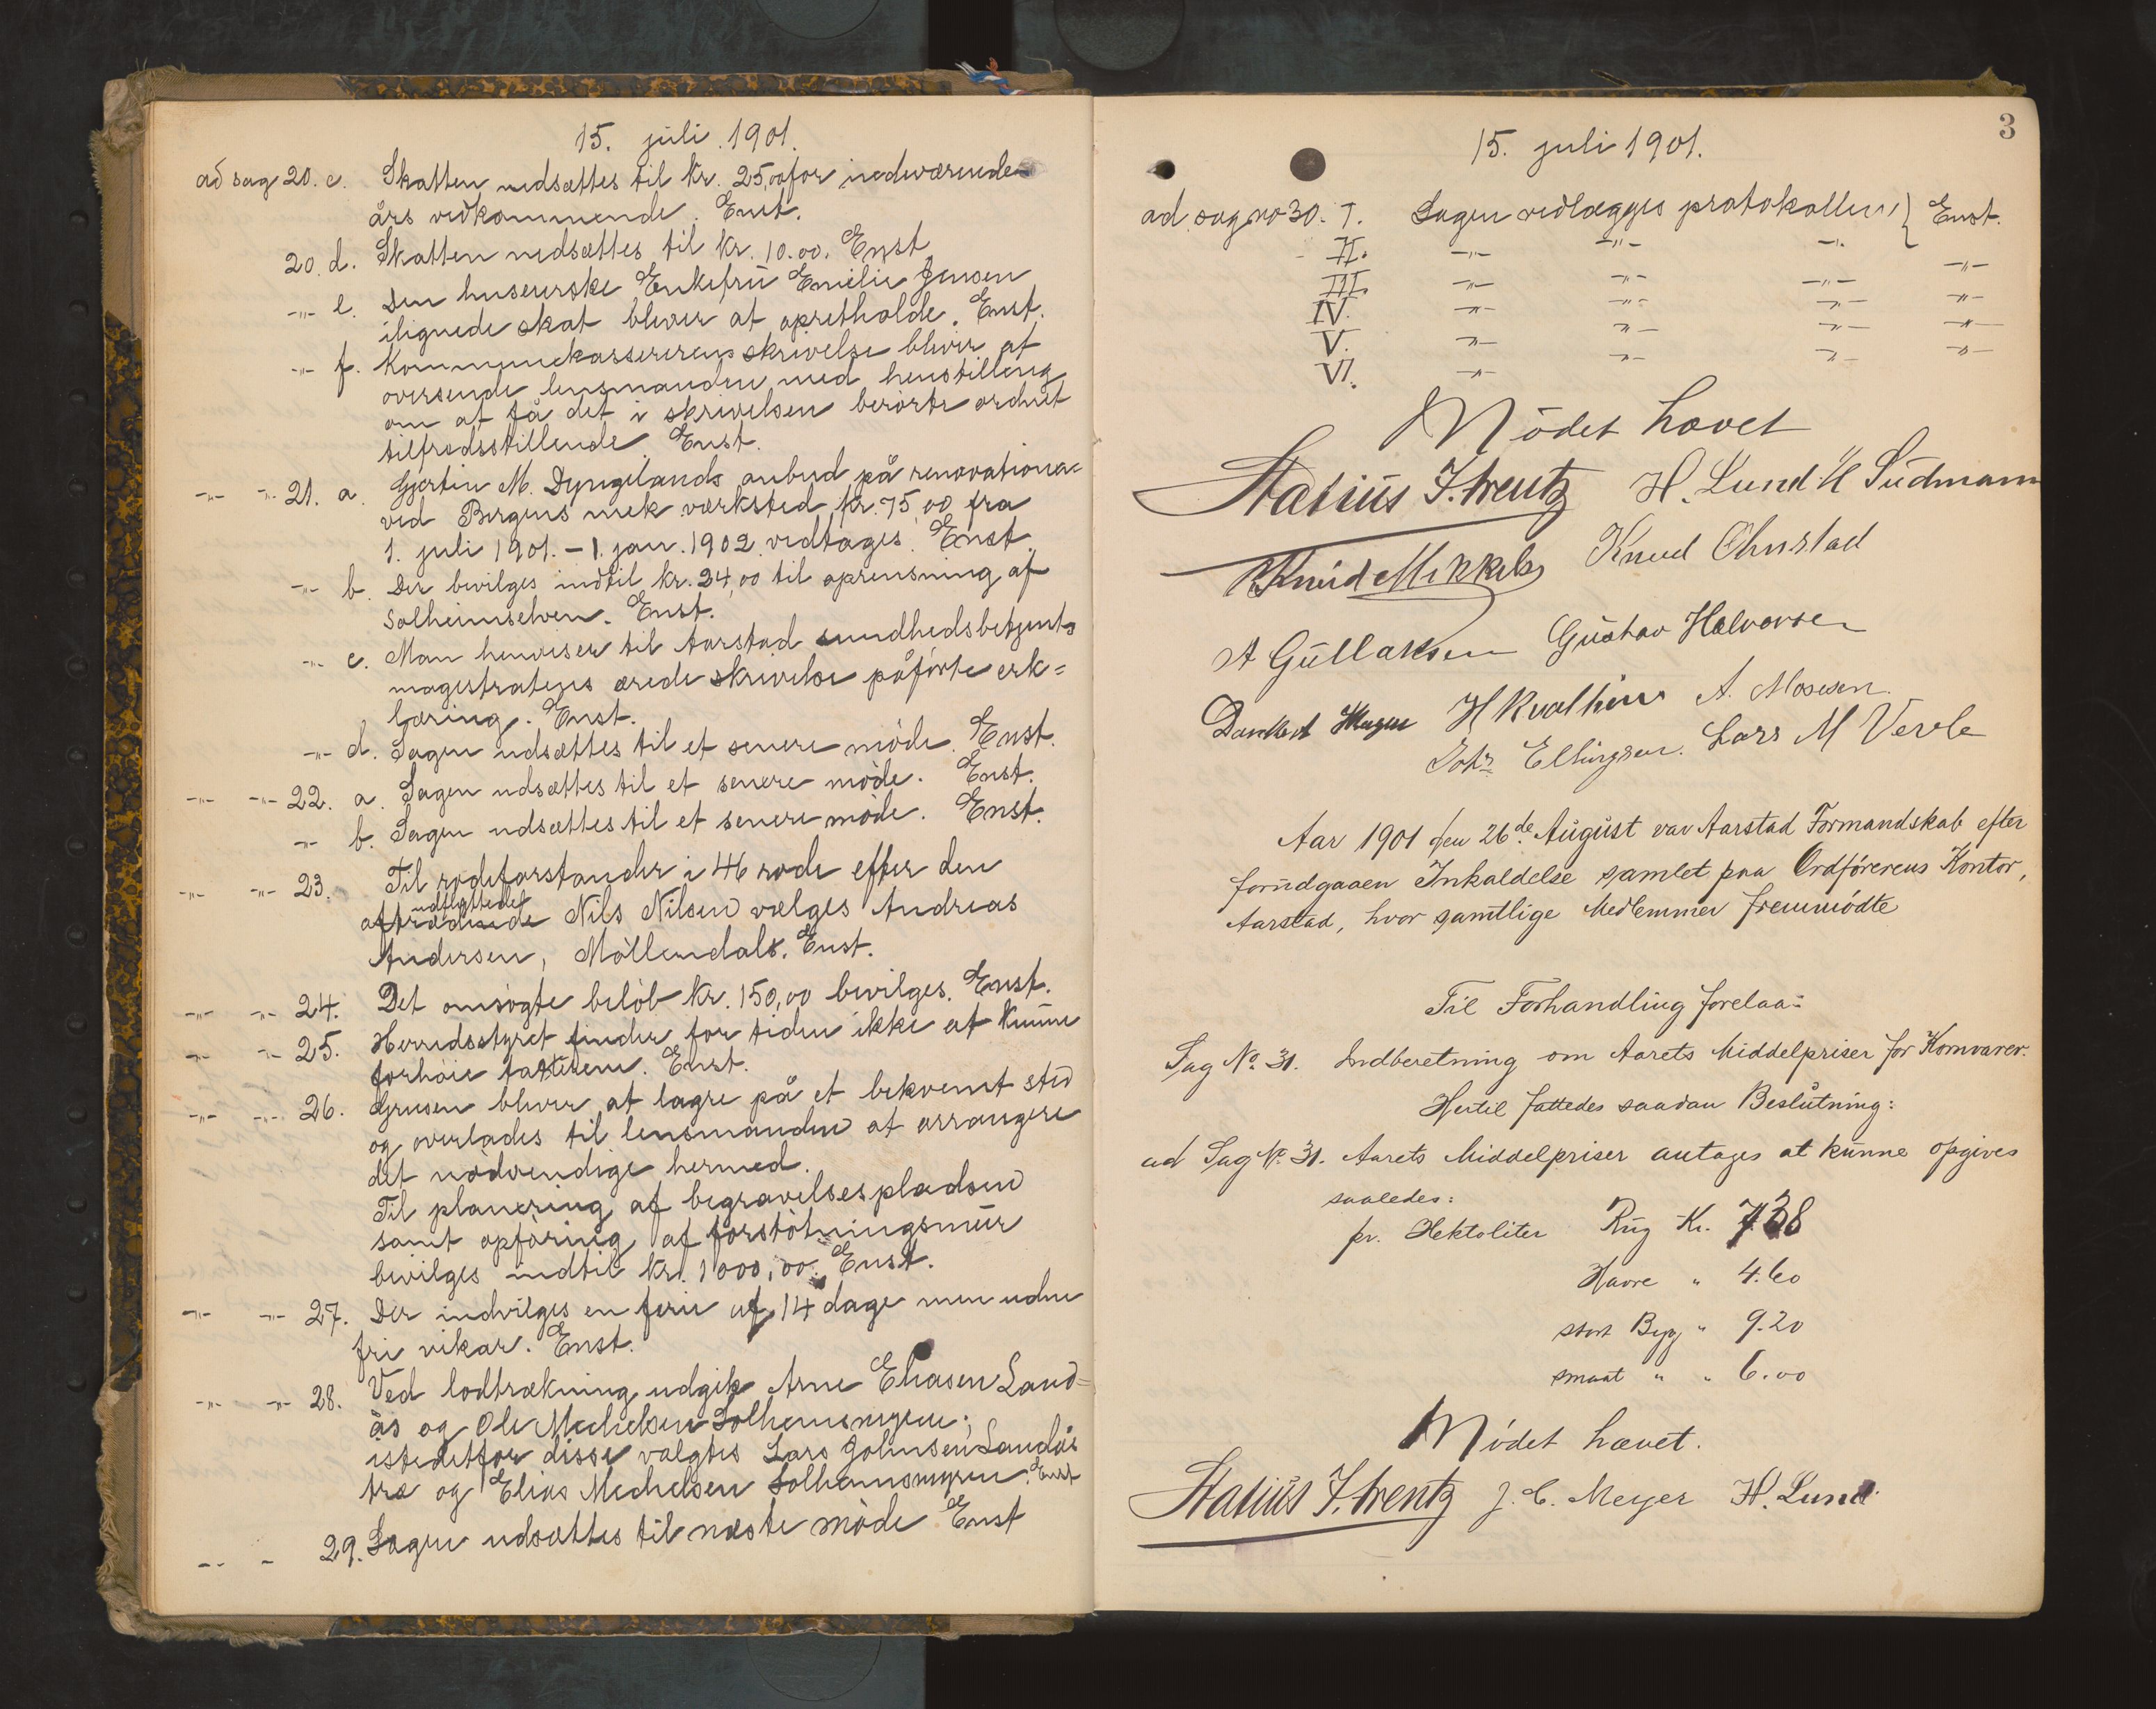 15. juli 1901.
ad sag 20. c. Skatten nedsættes til kr. 25,00 for indeværende
års vedkommende. Enst.
20. d. Skatten nedsættes til kr. 10.00. Enst
-"- e. Den huseierske Enkefru Emilie Jensen
ilignede skat bliver at opretholde. Enst.
-"- f. Kommunekassererens skrivelse blivir at
oversende lensmanden med henstilling
om at få det i skrivelsen berörte ordnet
tilfredsstillende. Enst.
-"- -"- 21. a. Gjertin M. Dyngelands anbud på renovationen
ved Bergens mek. værksted kr. 75,00 fra
1. juli 1901. - 1. jan. 1902 vedtages. Enst.
-"- b. Der bevilges indtil kr. 24,00 til oprensning af
Solheimselven. Enst.
-"- c. Man henviser til Aarstad sundhedsbetjents
magistratens ærede skrivelse påförte erk=
læring. Enst.
-"- d. Sagen udsættes til et senere möde. Enst.
-"- -"- 22. a. Sagen udsættes til et senere möde. Enst.
-"- b. Sagen udsættes til et senere möde. Enst.
-"- -"- 23. Til rodeforstander i 46 rode efter den
udflyttede
aftrædende Nils Nilsen vælges Andreas
Andersen, Möllendal. Enst.
-"- -"- 24. Det omsögte belöb kr. 150,00 bevilges. Enst.
-"- -"- 25. Herredsstyret finder for tiden ikke at kunne
forhöie taksten. Enst.
-"- -"- 26. Grusen bliver at lagre på et bekvemt sted
og overlades til lensmanden at arrangere
det nödvendige hermed.
Til planering af begravelsespladsen
samt opföring af forstötningsmur
bevilges indtil kr. 1000,00. Enst.
-"- -"- 27. Der indvilges en ferie af 14 dage men uden
fri vikar. Enst.
-"- -"- 28. Ved lodtrækning udgik Arne Eliasen Land=
ås og Ole Michelsen Solheimsmyren;
istedetfor disse valgtes Lars Johnsen Landås
træ og Elias Michelsen Solheimsmyren. Enst
-"- - 29. Sagen udsættes til næste möde Enst
3
15. juli 1901.
ad sag no 30. I. Sagen vedlægges protokollen } Enst.
II. -"- -"- -"-
III. -"- -"- -"- -"-
IV. -"- -"- -"- -"-
V. -"- -"- -"- -"-
VI. -"- -"- -"- -"-
Mödet hævet
Statius F. Irentz H. Lund H Südmann
Knud Mikkels Knud Ohnstad
A Gullaksen Gustav Halvorsen
Dankert H Kvalheim A. Mosesen.
Johs Ellingsen. Lars M Vevle
Aar 1901 den 26de August var Aarstad Formandskab efter
forudgaaen Inkaldelse samlet paa Ordförerens Kontor,
Aarstad, hvor samtlige Medlemmer fremmödte
Til Forhandling forelaa:
Sag No. 31. Indberetning om Aarets Middelpriser for Kornvarer.
Hertil fattedes saadan Beslutning:
ad Sag No. 31. Aarets Middelpriser antages at kunne opgives
saaledes:
pr. Hektoliter Rug Kr. 7.38
Havre " 4.60
stort Byg " 9.20
smaat " " 6.00
Mödet hævet.
Statius F. Irentz J. C. Meyer H. Lund